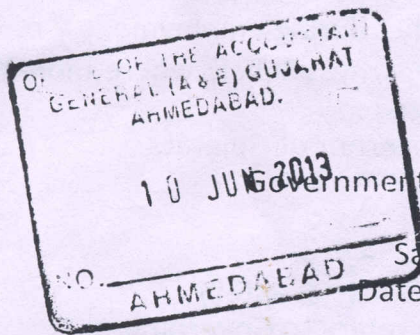 OF THE ACCOUNTANT
GENERAL (A & E) GUJARAT
AHMEDABAD.
10 JUN 2013
Government
NO.
AHMEDABAD
Sa
Date